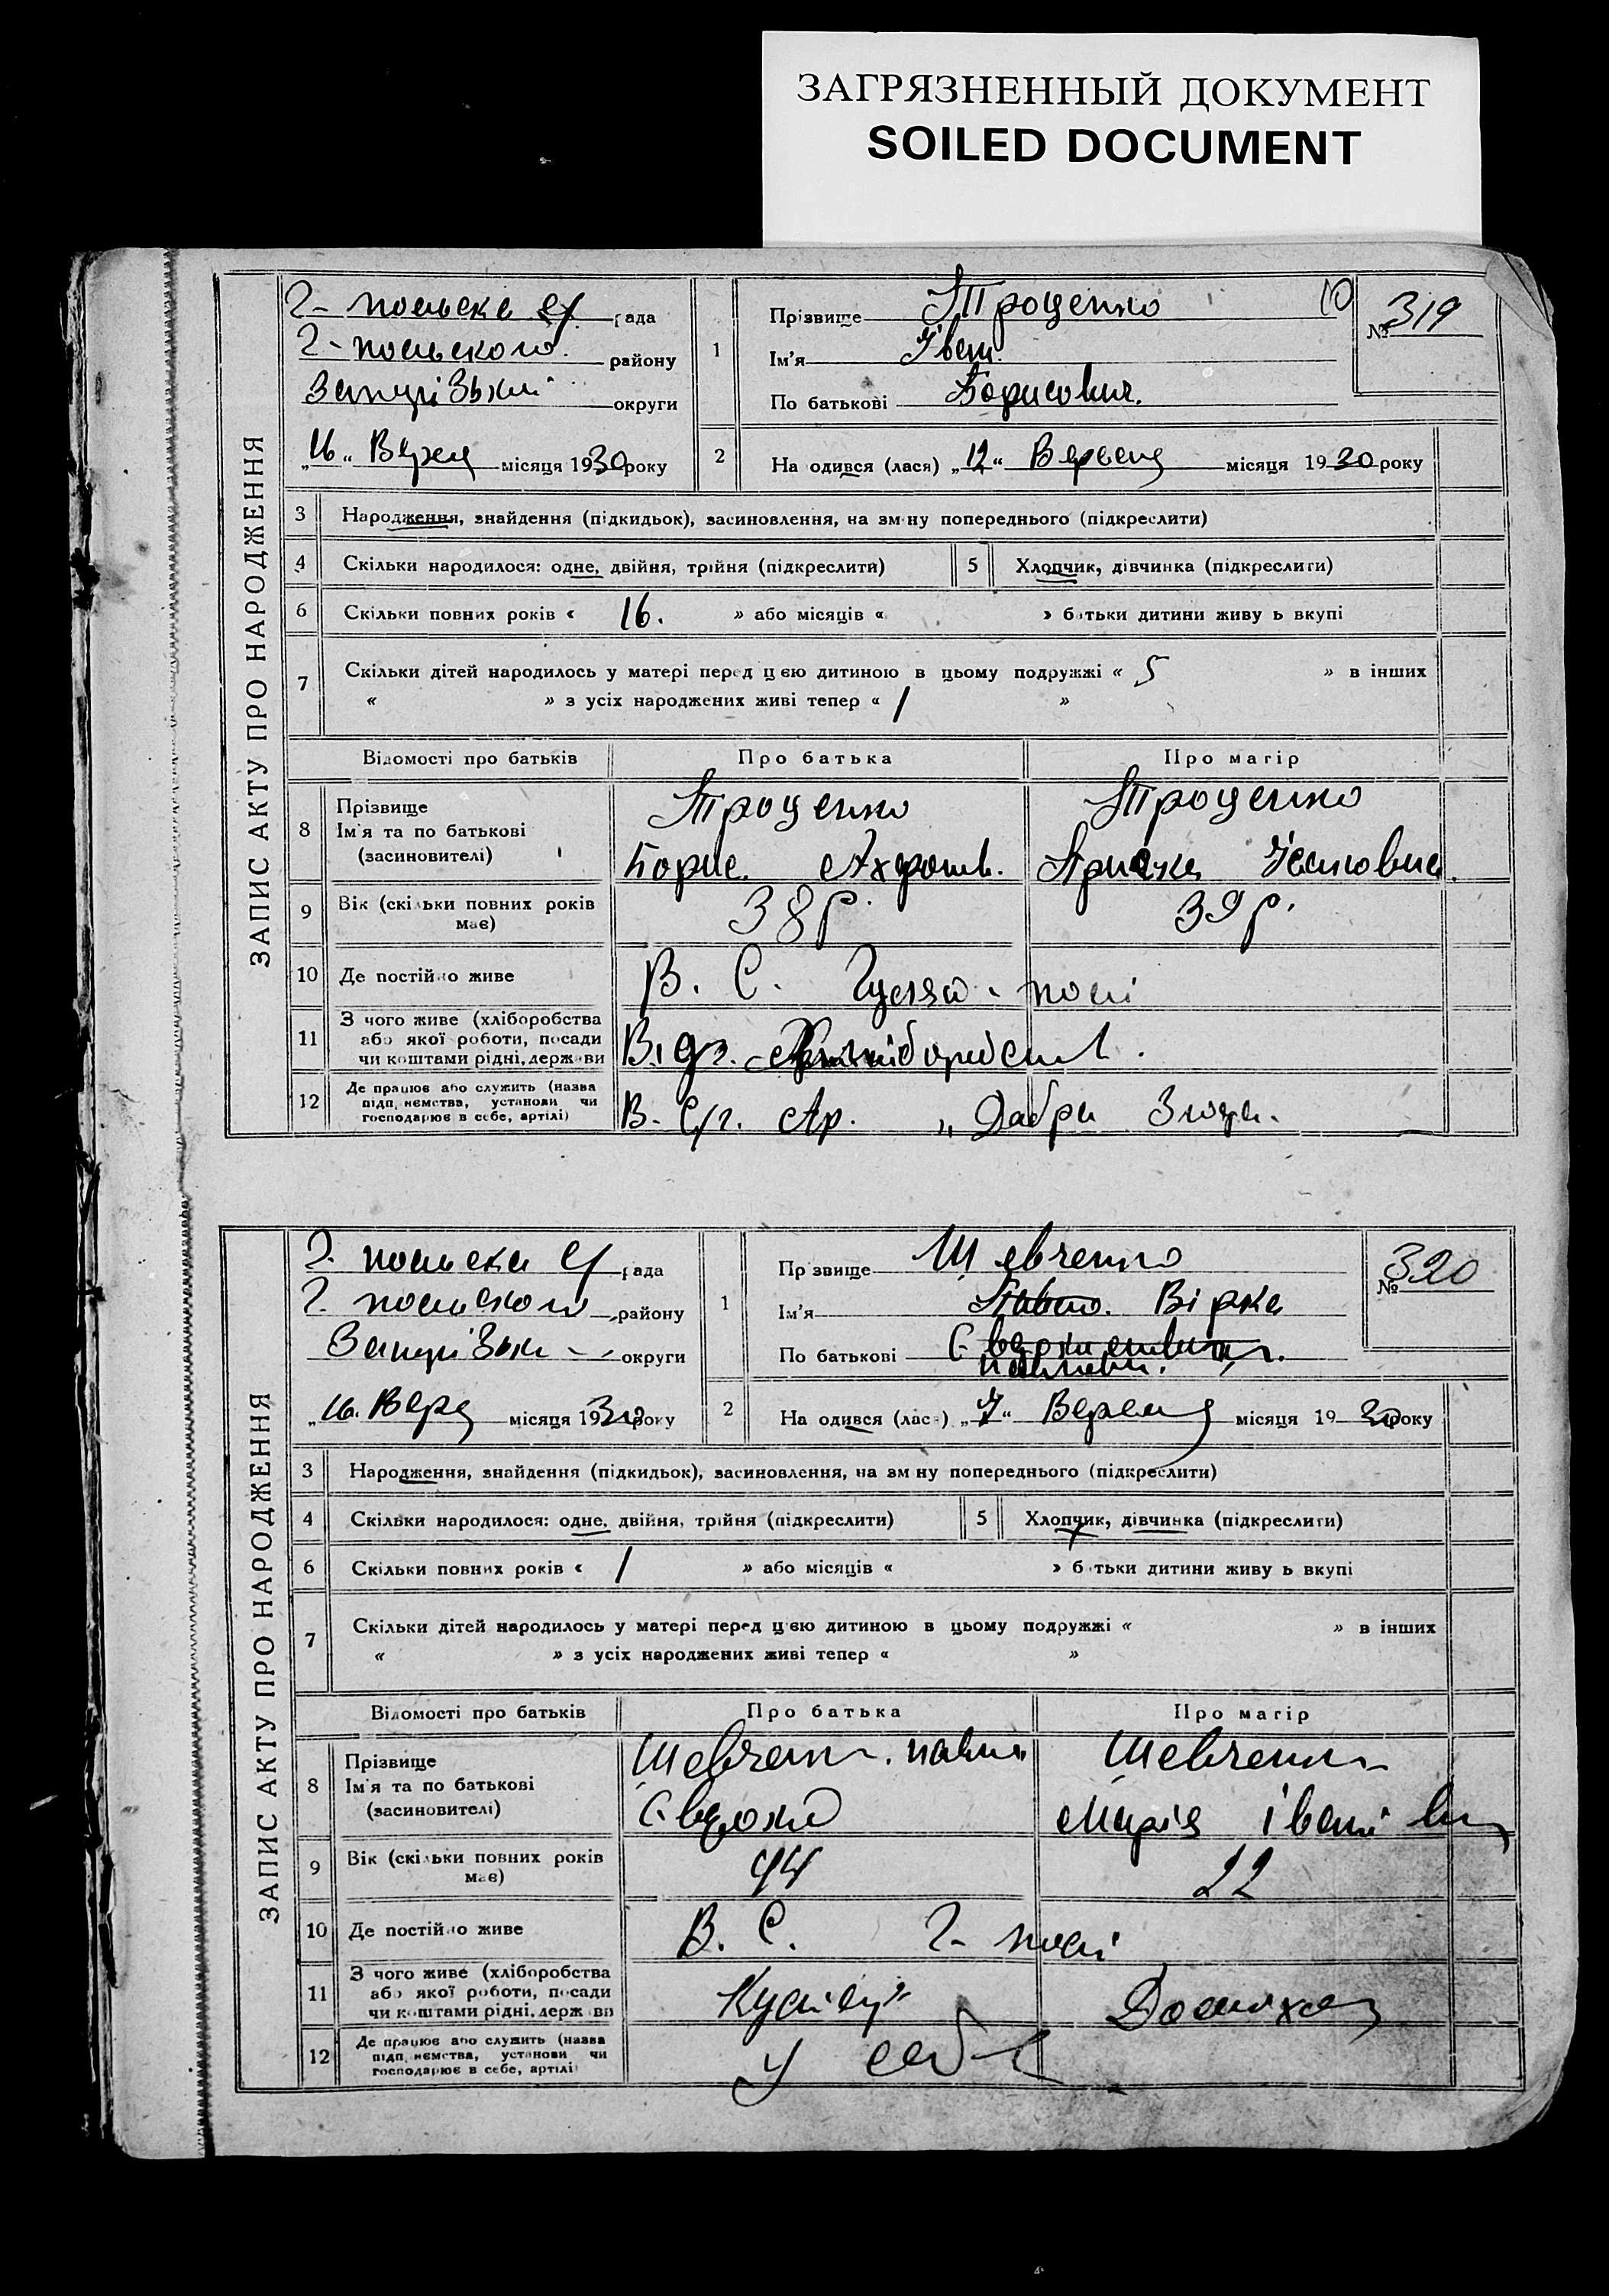 ЗАГРЯЗНЕННЫЙ ДОКУМЕНТ
SOILED DOCUMENT
ЗАПИС АКТУ ПРО НАРОДЖЕННЯ
Г- польска с/ рада
Г- польского району
округи
"16" місяця 1930 року
1
Прізвище Троценко
Ім'я Іван
По батькові Борисович.
10
№ 319
2
На одився (лася) "12" місяця 1930 року
3 Народження, знайдення (підкидьок), засиновлення, на зм ну попереднього (підкреслити)
4 Скільки народилося: одне, двійня, трійня (підкреслити) 5 Хлопчик, дівчинка (підкреслиги)
6 Скільки повних років « 16. » або місяців « » б тьки дитини живу ь вкупі
7 Скільки дітей народилось у матері перед цією дитиною в цьому подружжі « 5 » в інших
« » з усіх народжених живі тепер « 1 »
Відомості про батьків Про батька Про матір
8 Прізвище
Ім'я та по батькові
(засиновителі)
Троценко Троценко
Борис
9 Вік (скільки повних років
має)
38 р. 39 р.
10 Де постійно живе В. С. Гуляй-полі
11 З чого живе (хліборобства
або якої роботи, посади
чи коштами рідні, держави
12 Де працює або служить (назва
підп иємства, установи чи
господарює в себе, артілі)
В. С/г. Ар.
ЗАПИС АКТУ ПРО НАРОДЖЕННЯ
Г. польска с/ рада
Г. польского району
округи
"16" місяця 1930 року
1
Пр звище Шевченко
Ім'я Павло. Вірка
По батькові
№ 320
2
На одився (лас ) "7" місяця 1930 року
3 Народження, знайдення (підкидьок), засиновлення, на зм ну попереднього (підкреслити)
4 Скільки народилося: одне, двійня, трійня (підкреслити) 5 Хлопчик, дівчинка (підкреслиги)
6 Скільки повних років « 1 » або місяців « » б тьки дитини живу ь вкупі
7 Скільки дітей народилось у матері перед цією дитиною в цьому подружжі « » в інших
« » з усіх народжених живі тепер « »
Відомості про батьків Про батька Про матір
8 Прізвище
Ім'я та по батькові
(засиновителі)
Шевченко Павло Шевченко
Марія Іванівн
9 Вік (скільки повних років
має)
44 22
10 Де постійно живе В. С. Г- полі
11 З чого живе (хліборобства
або якої роботи, посади
чи коштами рідні, держ ви
Домохаз
12 Де працює або служить (назва
підп иємства, установи чи
господарює в себе, артілі
У себе